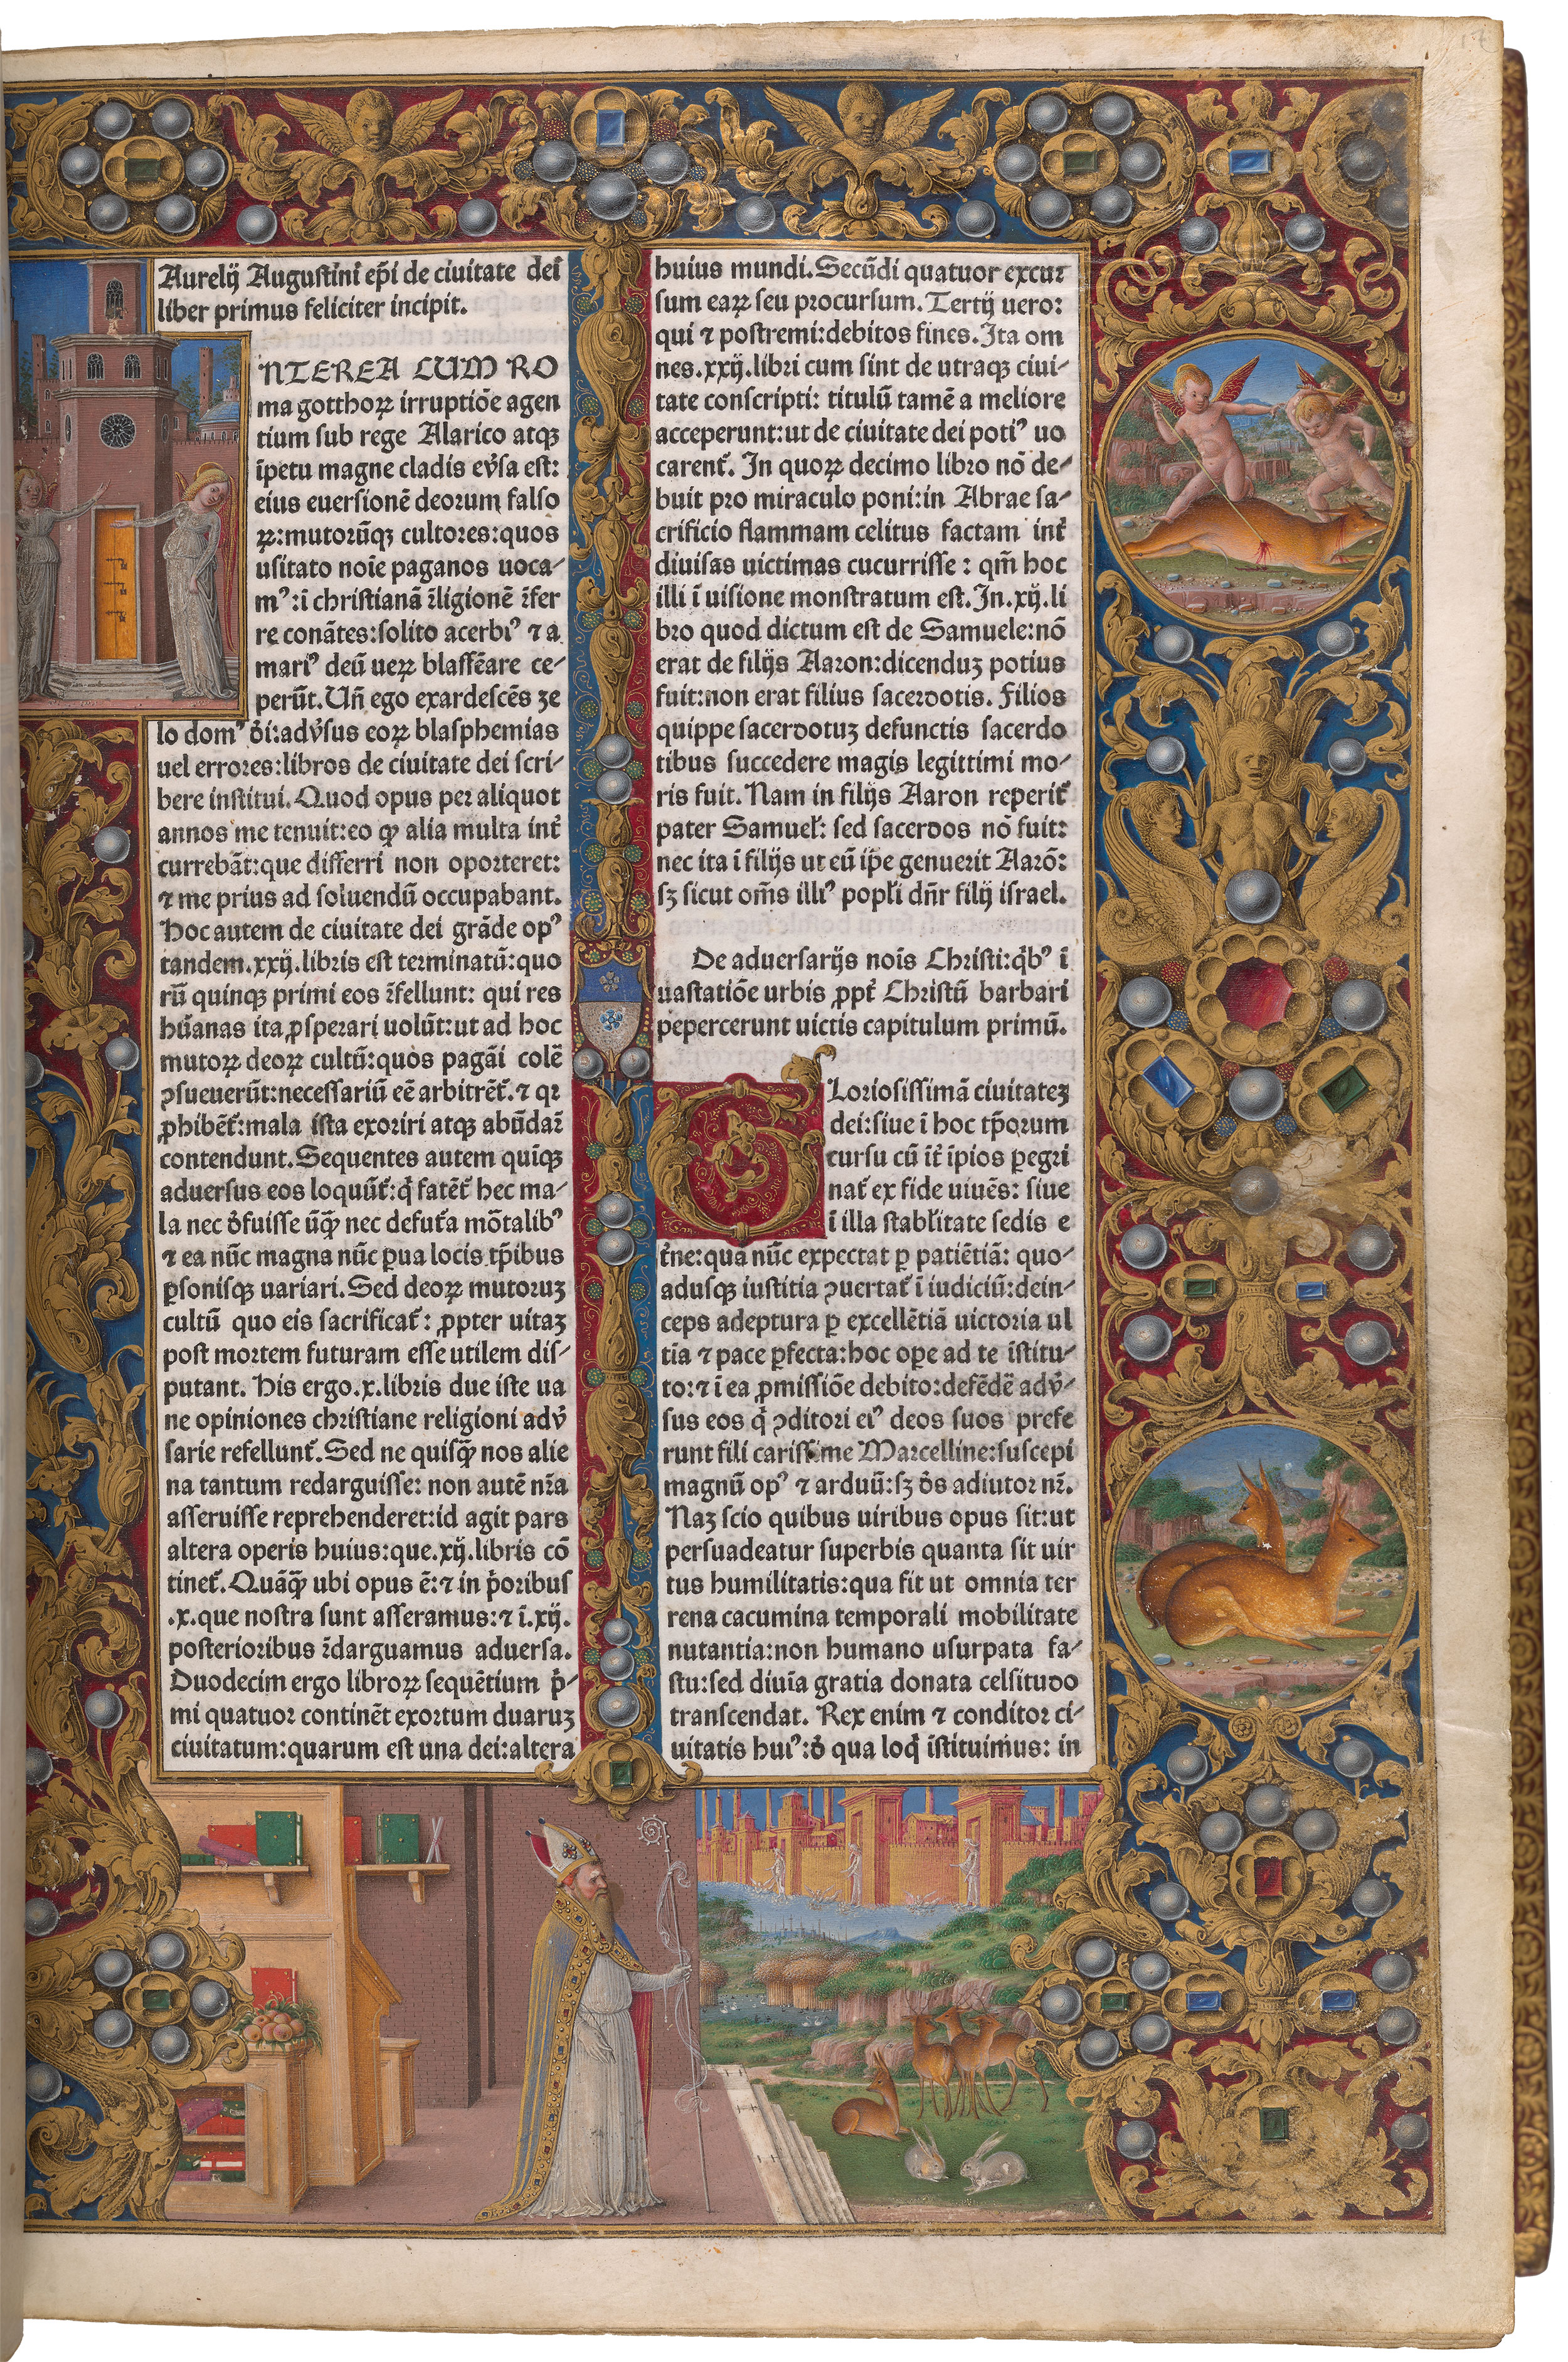 Aurelij Augustini ep̄i de ciuitate dei
liber primus feliciter incipit.
NTEREA CUM RO
ma gotthoꝝ irruptiōe agen
tium sub rege Alarico atqꝫ
īpetu magne cladis eṽsa est:
eius euersionē deorum falso
ꝝ:mutorūqꝫ cultores:quos
usitato noīe paganos uoca-
mꝰ:ī christianā r̄ligionē r̄fer
re conātes:solito acerbiꝰ ⁊ a
mariꝰ deū ueꝝ blasfēare ce-
perūt. Uñ ego exardescēs ze
lo domꝰ d̄i:adṽsus eoꝝ blasphemias
uel errores:libros de ciuitate dei scri-
bere institui. Quod opus per aliquot
annos me tenuit:eo ꝙ alia multa int̄
currebāt:que differri non oporteret:
⁊ me prius ad soluendū occupabant.
Hoc autem de ciuitate dei grāde opꝰ
tandem.xxij.libris est terminatū:quo
rū quinqꝫ primi eos r̄fellunt: qui res
hūanas ita ꝓsperari uolūt:ut ad hoc
mutoꝝ deoꝝ cultū:quos pagāi colē
ꝯsueuerūt:necessariū eē arbitrēt̄.⁊ qꝛ
ꝓhibēt̄:mala ista exoriri atqꝫ abūdar̄
contendunt. Sequentes autem quīqꝫ
aduersus eos loquūt̄:q̄ fatēt̄ hec ma-
la nec d̄fuisse ūꝙ̄ nec defut̄a mōtalibꝰ
⁊ ea nūc magna nūc ꝑua locis tp̄ibus
ꝑsonisqꝫ uariari. Sed deoꝝ mutoruꝫ
cultū quo eis sacrificat̄: ꝓpter uitaꝫ
post mortem futuram esse utilem dis-
putant. His ergo.x.libris due iste ua
ne opiniones christiane religioni adṽ
sarie refellunt̄. Sed ne quisꝙ̄ nos alie
na tantum redarguisse: non autē nr̄a
asseruisse reprehenderet:id agit pars
altera operis huius:que.xij.libris cō
tinet̄. Quāꝙ̄ ubi opus ē:⁊ in p̄oribus
.x.que nostra sunt asseramus:⁊ ī.xij.
posterioribus r̄darguamus aduersa.
Duodecim ergo libroꝝ sequētium p̄-
mi quatuor continēt exortum duaruꝫ
ciuitatum:quarum est una dei:altera
huius mundi. Secūdi quatuor excur
sum eaꝝ seu procursum. Tertij uero:
qui ⁊ postremi:debitos fines. Ita om
nes.xxij.libri cum sint de utraqꝫ ciui-
tate conscripti: titulū tamē a meliore
acceperunt:ut de ciuitate dei potiꝰ uo
carent̄. In quoꝝ decimo libro nō de-
buit pro miraculo poni:in Abrae sa-
crificio flammam celitus factam int̄
diuisas uictimas cucurrisse: qm̄ hoc
illi ī uisione monstratum est. In.xij.li
bro quod dictum est de Samuele:nō
erat de filijs Aaron:dicenduꝫ potius
fuit:non erat filius sacerdotis. Filios
quippe sacerdotuꝫ defunctis sacerdo
tibus succedere magis legittimi mo-
ris fuit. Nam in filijs Aaron reperit̄
pater Samuel̄: sed sacerdos nō fuit:
nec ita ī filijs ut eū ip̄e genuerit Aarō:
sꝫ sicut om̄s illiꝰ popl̄i dn̄r filij israel.
De aduersarijs noīs Christi:q̄bꝰ ī
uastatiōe urbis ꝓpt̄ Christū barbari
pepercerunt uictis capitulum primū.
GLoriosissimā ciuitateꝫ
dei:siue ī hoc tp̄orum
cursu cū it̄ īpios ꝑegri
nat̄ ex fide uiuēs: siue
ī illa stabl̄itate sedis e
t̄ne:qua nūc expectat ꝑ patiētiā: quo-
adusqꝫ iustitia ꝯuertat̄ ī iudiciū:dein-
ceps adeptura ꝑ excellētiā uictoria ul
tīa ⁊ pace ꝑfecta:hoc oꝑe ad te īstitu-
to:⁊ ī ea ꝓmissiōe debito:defēdē adṽ-
sus eos q̄ ꝯditori eiꝰ deos suos prefe
runt fili carissime Marcelline:suscepi
magnū opꝰ ⁊ arduū:sꝫ d̄s adiutor nr̄.
Naꝫ scio quibus uiribus opus sit:ut
persuadeatur superbis quanta sit uir
tus humilitatis:qua fit ut omnia ter
rena cacumina temporali mobilitate
nutantia:non humano usurpata fa-
stu:sed diuīa gratia donata celsitudo
transcendat. Rex enim ⁊ conditor ci-
uitatis huiꝰ:d̄ qua loq̄ īstituimus: in